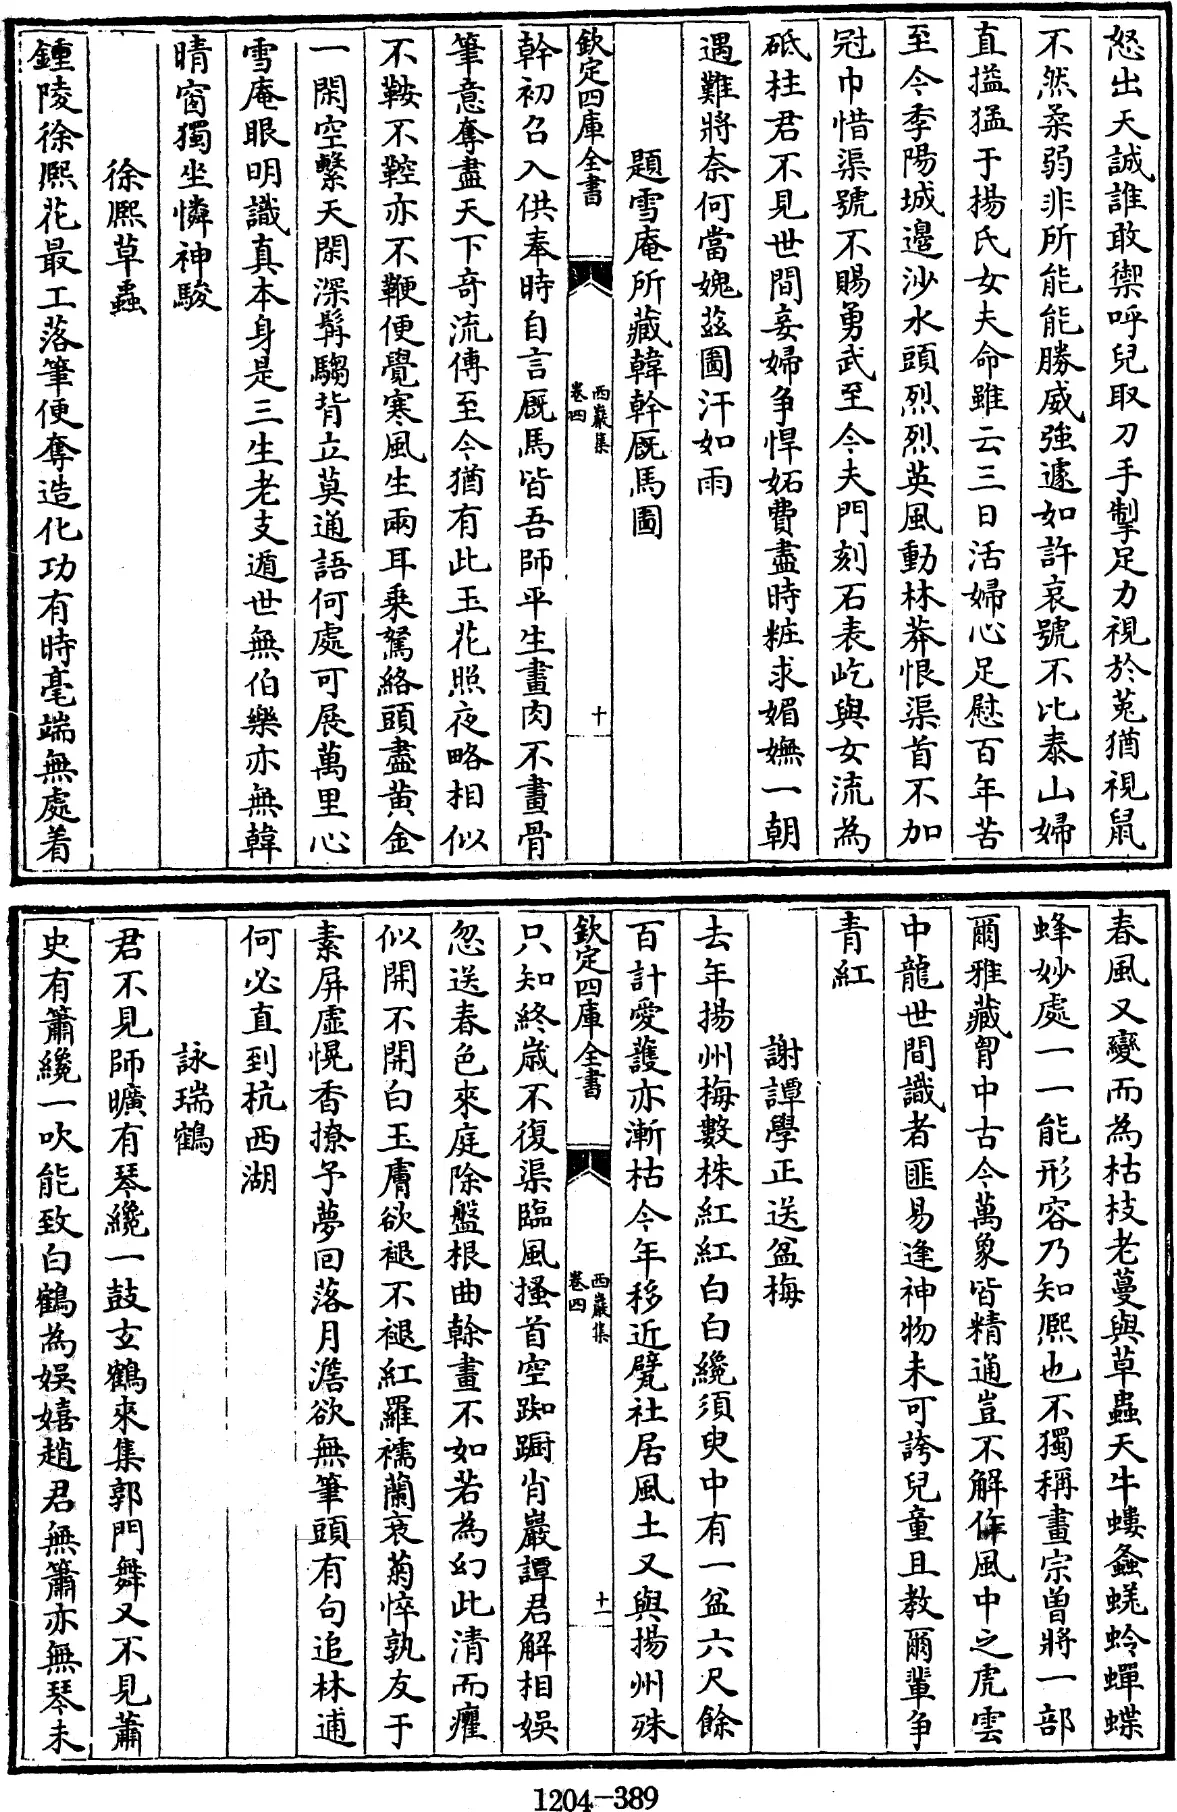 怒出天誠誰敢禦呼兒取刀手掣足力視於菟猶視鼠
不然柔弱非所能能勝威強遽如許哀號不比泰山婦
直搤猛于揚氏女夫命雖云三日活婦心足慰百年苦
至今季陽城邉沙水頭烈烈英風動林莽恨渠首不加
冠巾惜渠號不賜勇武至今夫門刻石表屹與女流為
砥柱君不見世間妾婦争悍妬費盡時粧求媚嫵一朝
遇難將奈何當媿兹圖汗如雨
題雪庵所藏韓幹厩馬圖
欽定四庫全書
西巖集
卷四
十
幹初召入供奉時自言厩馬皆吾師平生畫肉不畫骨
筆意奪盡天下奇流傳至今猶有此玉花照夜略相似
不鞍不鞚亦不鞭便覺寒風生兩耳乗駑絡頭盡黄金
一閑空繫天閑深髯騶背立莫通語何處可展萬里心
雪庵眼明識真本身是三生老支遁世無伯樂亦無韓
晴窗獨坐憐神駿
徐熈草蟲
鍾陵徐熈花最工落筆便奪造化功有時毫端無處着
春風又變而為枯枝老蔓與草蟲天牛螻螽蜣蛉蟬蝶
蜂妙處一一能形容乃知熈也不獨稱畫宗曽將一部
爾雅藏胷中古今萬象皆精通豈不解作風中之虎雲
中龍世間識者匪易逢神物未可誇兒童且教爾輩争
青紅
謝譚學正送盆梅
去年揚州梅數株紅紅白白纔須臾中有一盆六尺餘
百計愛護亦漸枯今年移近甓社居風土又與揚州殊
欽定四庫全書
西巖集
卷四
十一
只知終歳不復渠臨風搔首空踟蹰肖巖譚君解相娱
忽送春色來庭除盤根曲榦畫不如若為幻此清而癯
似開不開白玉膚欲褪不褪紅羅襦蘭衰菊悴孰友于
素屏虛幌香撩予夢回落月澹欲無筆頭有句追林逋
何必直到杭西湖
詠瑞鶴
君不見師曠有琴纔一鼓玄鶴來集郭門舞又不見蕭
史有簫纔一吹能致白鶴為娱嬉趙君無簫亦無琴未
1204-389